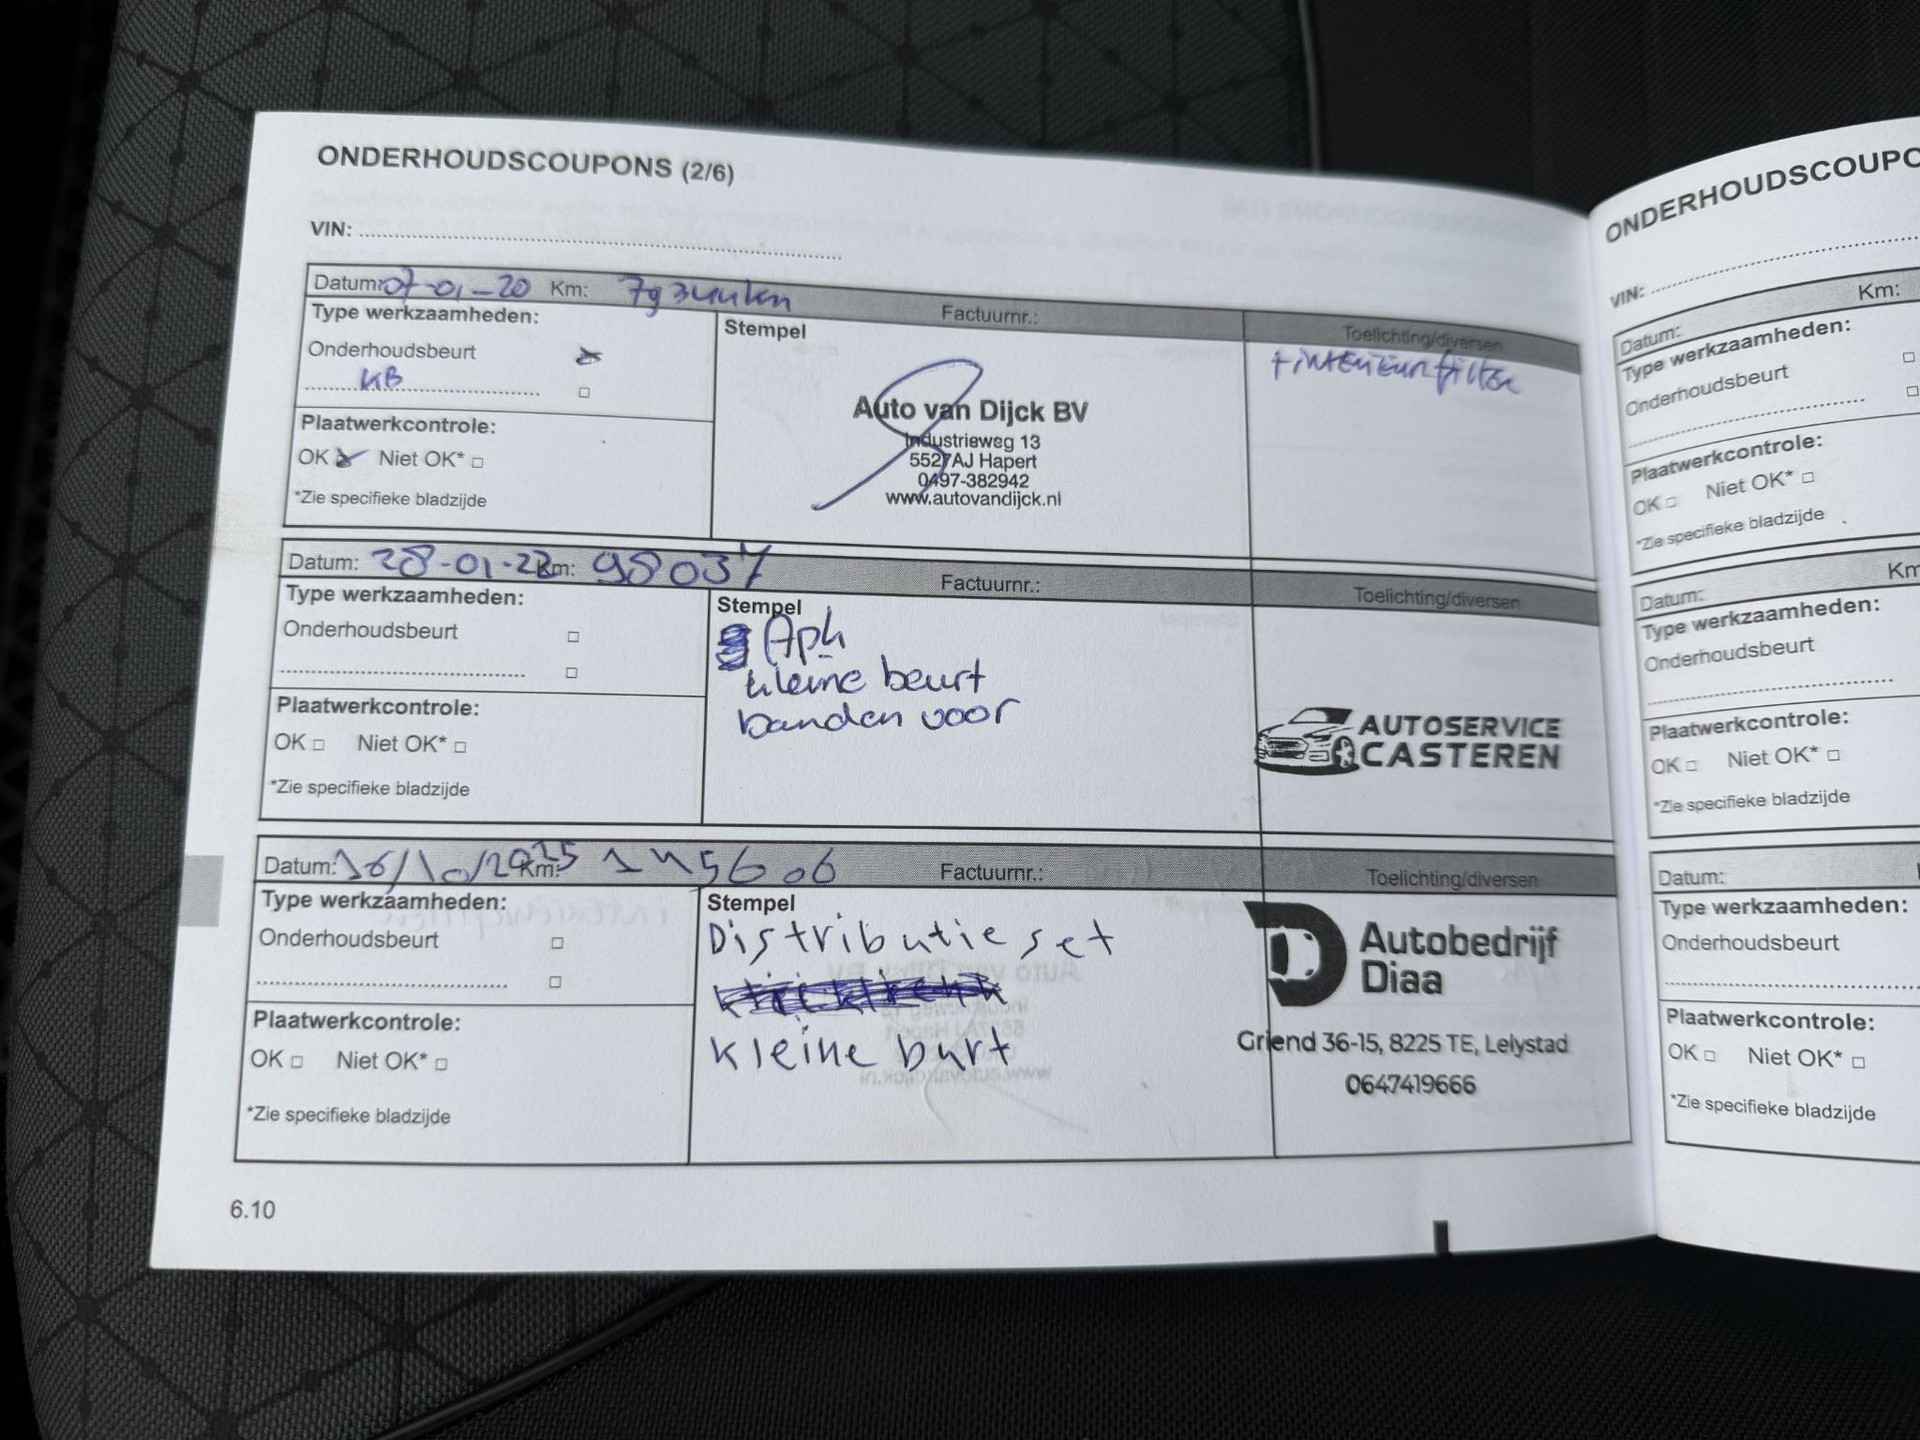 ONDERHOUDSCOUPONS (2/6)
VIN:
Datum: 07-01-20 Km:
Factuurnr.:
Toelichting/diversen
Type werkzaamheden:
Onderhoudsbeurt
KB
Plaatwerkcontrole:
OK Niet OK*
*Zie specifieke bladzijde
Stempel
Auto van Dijck BV
Industrieweg 13
5527AJ Hapert
0497-382942
www.autovandijck.nl
+ interieurfilter
Datum: 28-01-22 Km: 98037
Factuurnr.:
Toelichting/diversen
Type werkzaamheden:
Onderhoudsbeurt
Plaatwerkcontrole:
OK Niet OK*
*Zie specifieke bladzijde
Stempel
Apk
kleine beurt
banden voor
AUTOSERVICE
CASTEREN
Datum: 16/10/2025 Km: 145606
Factuurnr.:
Toelichting/diversen
Type werkzaamheden:
Onderhoudsbeurt
Plaatwerkcontrole:
OK Niet OK*
*Zie specifieke bladzijde
Stempel
Distributie set
kleine burt
D Autobedrijf
Diaa
Griend 36-15, 8225 TE, Lelystad
0647419666
6.10
ONDERHOUDSCOUPO
VIN:
Datum: Km:
Type werkzaamheden:
Onderhoudsbeurt
Plaatwerkcontrole:
OK Niet OK*
*Zie specifieke bladzijde
Datum: Km
Type werkzaamheden:
Onderhoudsbeurt
Plaatwerkcontrole:
OK Niet OK*
*Zie specifieke bladzijde
Datum:
Type werkzaamheden:
Onderhoudsbeurt
Plaatwerkcontrole:
OK Niet OK*
*Zie specifieke bladzijde